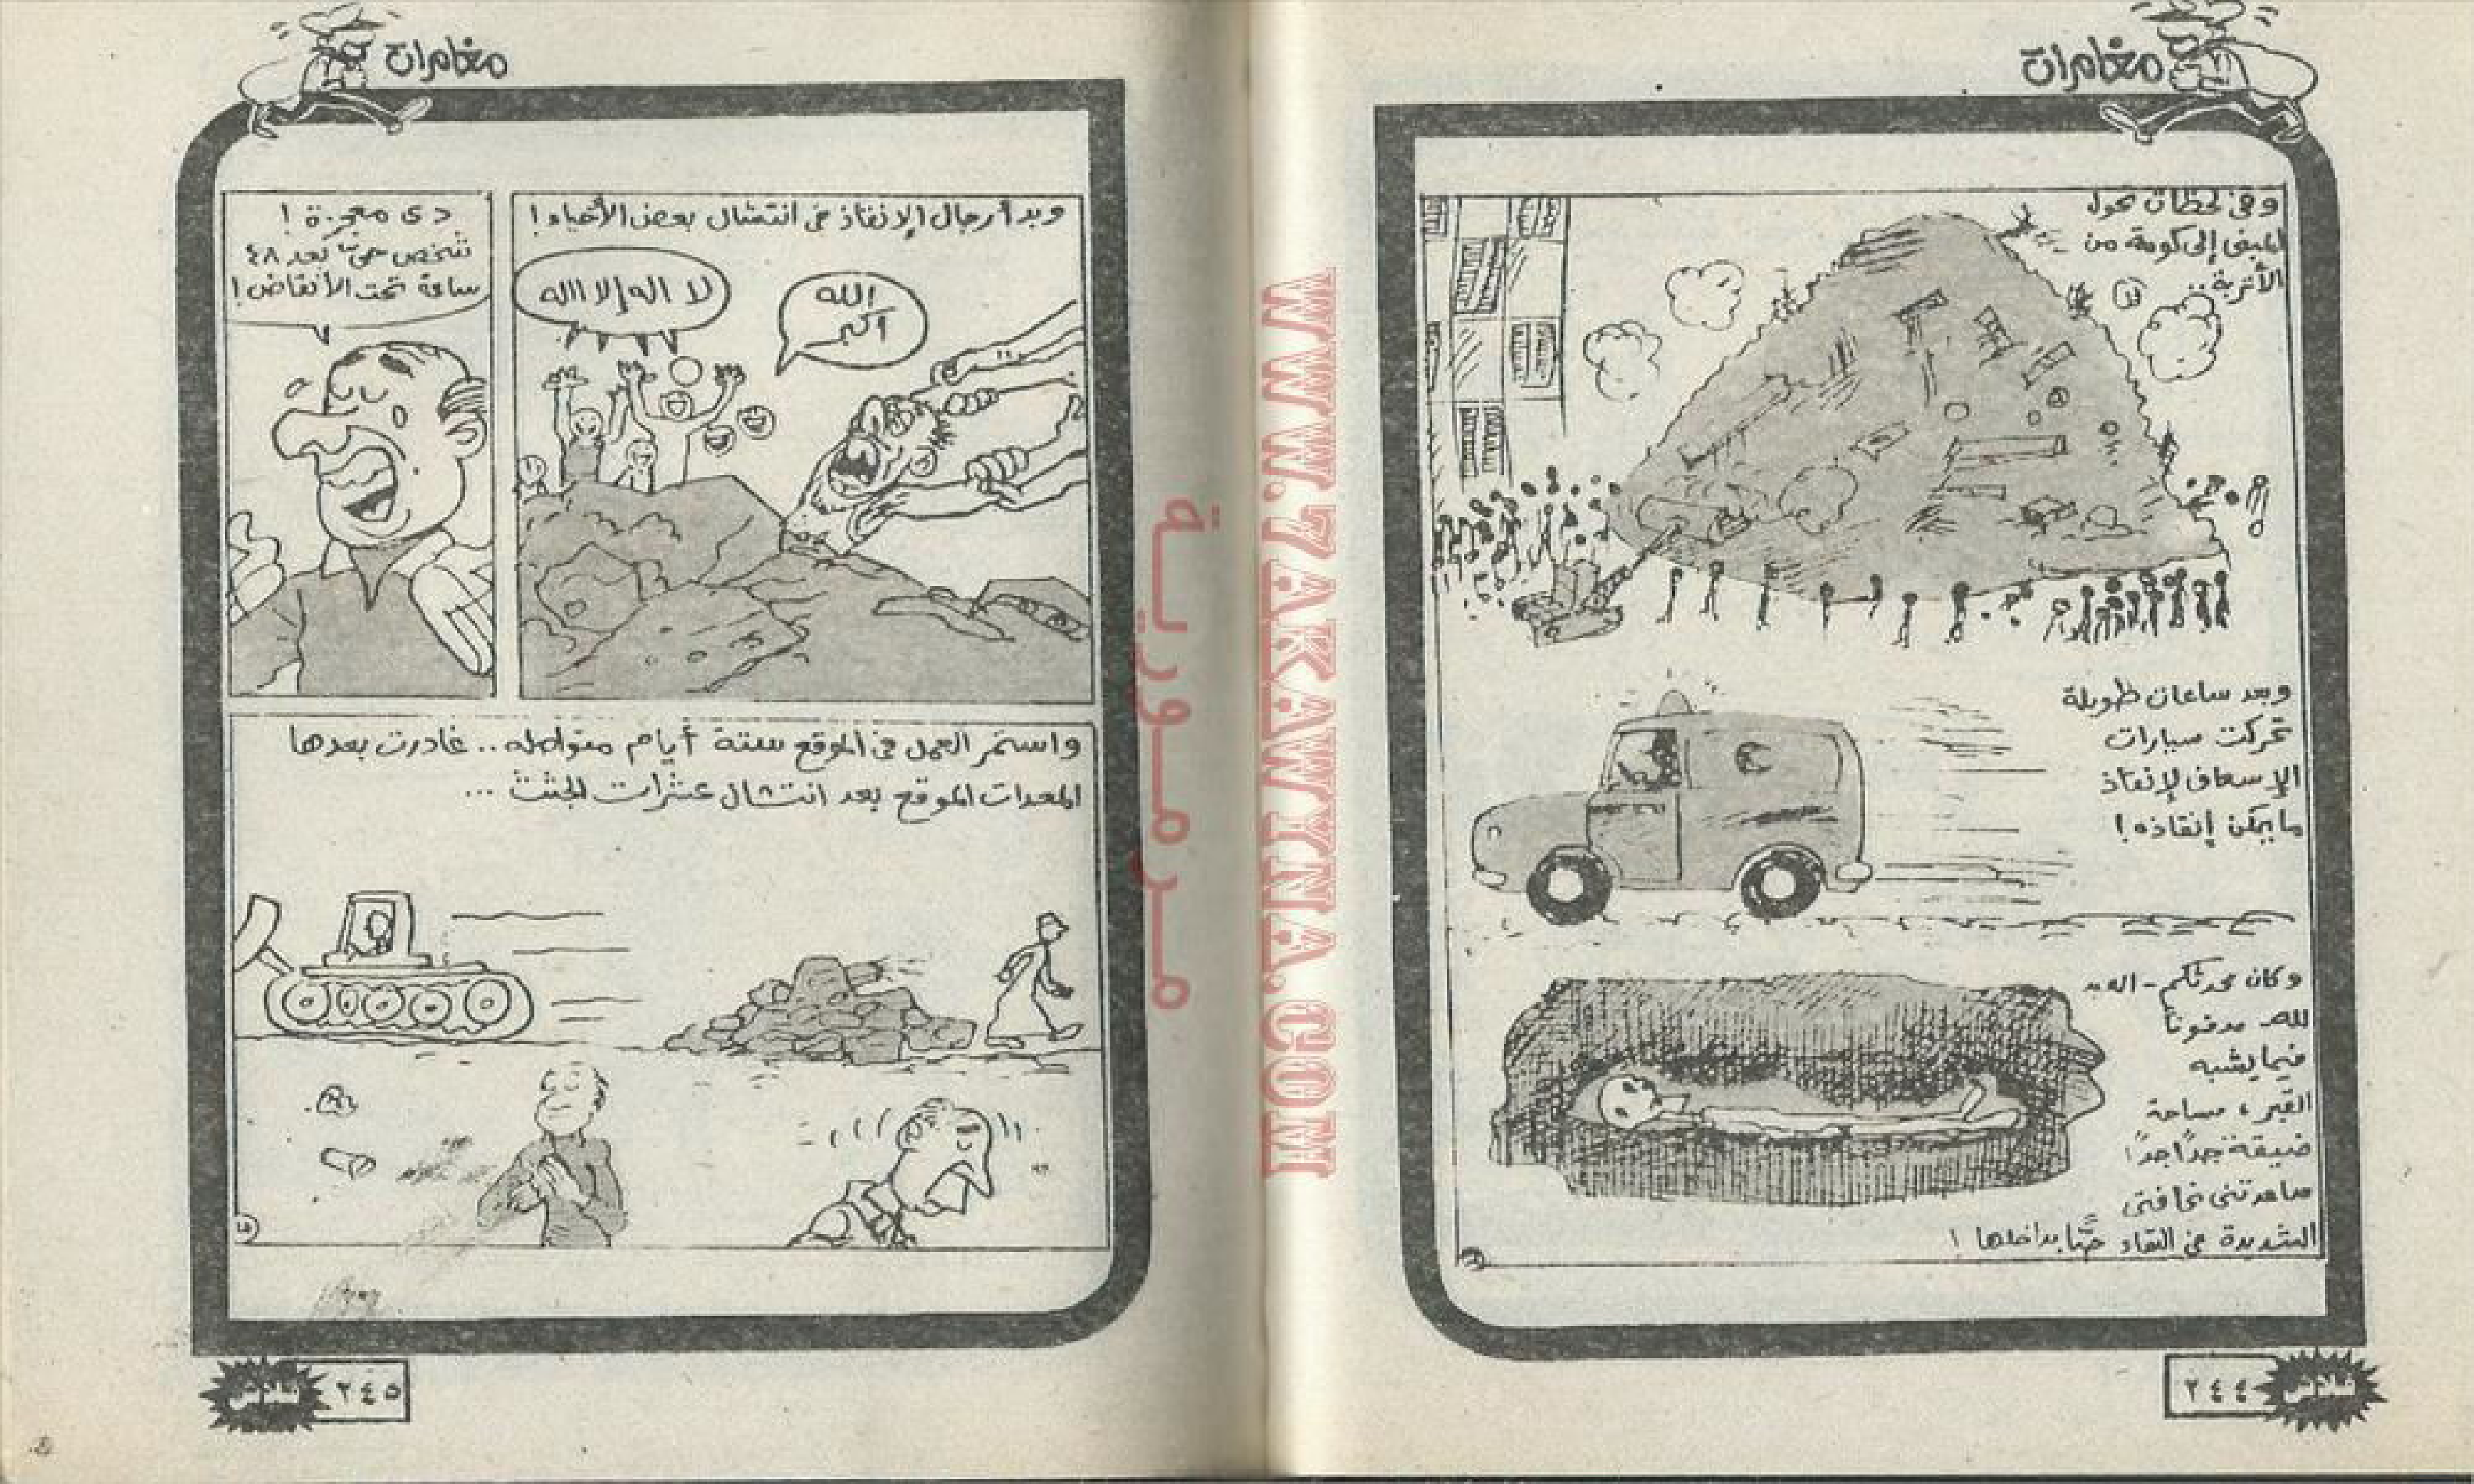 مغامرات
وفى لحظات تحول
المبنى إلى كومة من
الأتربة..
وبعد ساعات طويلة
تحركت سيارات
الإسعاف لإنقاذ
ما يمكن إنقاذه!
وكان محدثكم - العبد
لله مدفوناً
فيما يشبه
القبر، مساحة
ضيقة جداً جداً!
ساعدتنى نحافتى
الشديدة فى البقاء حيّاً بداخلها!
٢٤٤
فلاش
مغامرات
وبدأ رجال الإنقاذ فى انتشال بعض الأحياء!
الله
أكبر
لا اله إلا الله
دى معجزة!
شخص حىّ بعد ٤٨
ساعة تحت الأنقاض!
واستمر العمل فى الموقع ستة أيام متواصله.. غادرت بعدها
المعدات الموقع بعد انتشال عشرات الجثث ...
٢٤٥
فلاش
مدمورية
WWW.7AKAWINA.COM